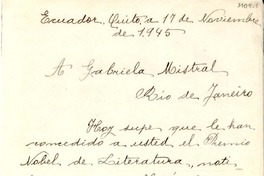 Ecuador, Quito, a 17 de Noviembre
de 1945
A Gabriela Mistral
Rio de Janeiro
Hoy supe que le han
concedido a usted el Premio
Nobel de Literatura, noti-